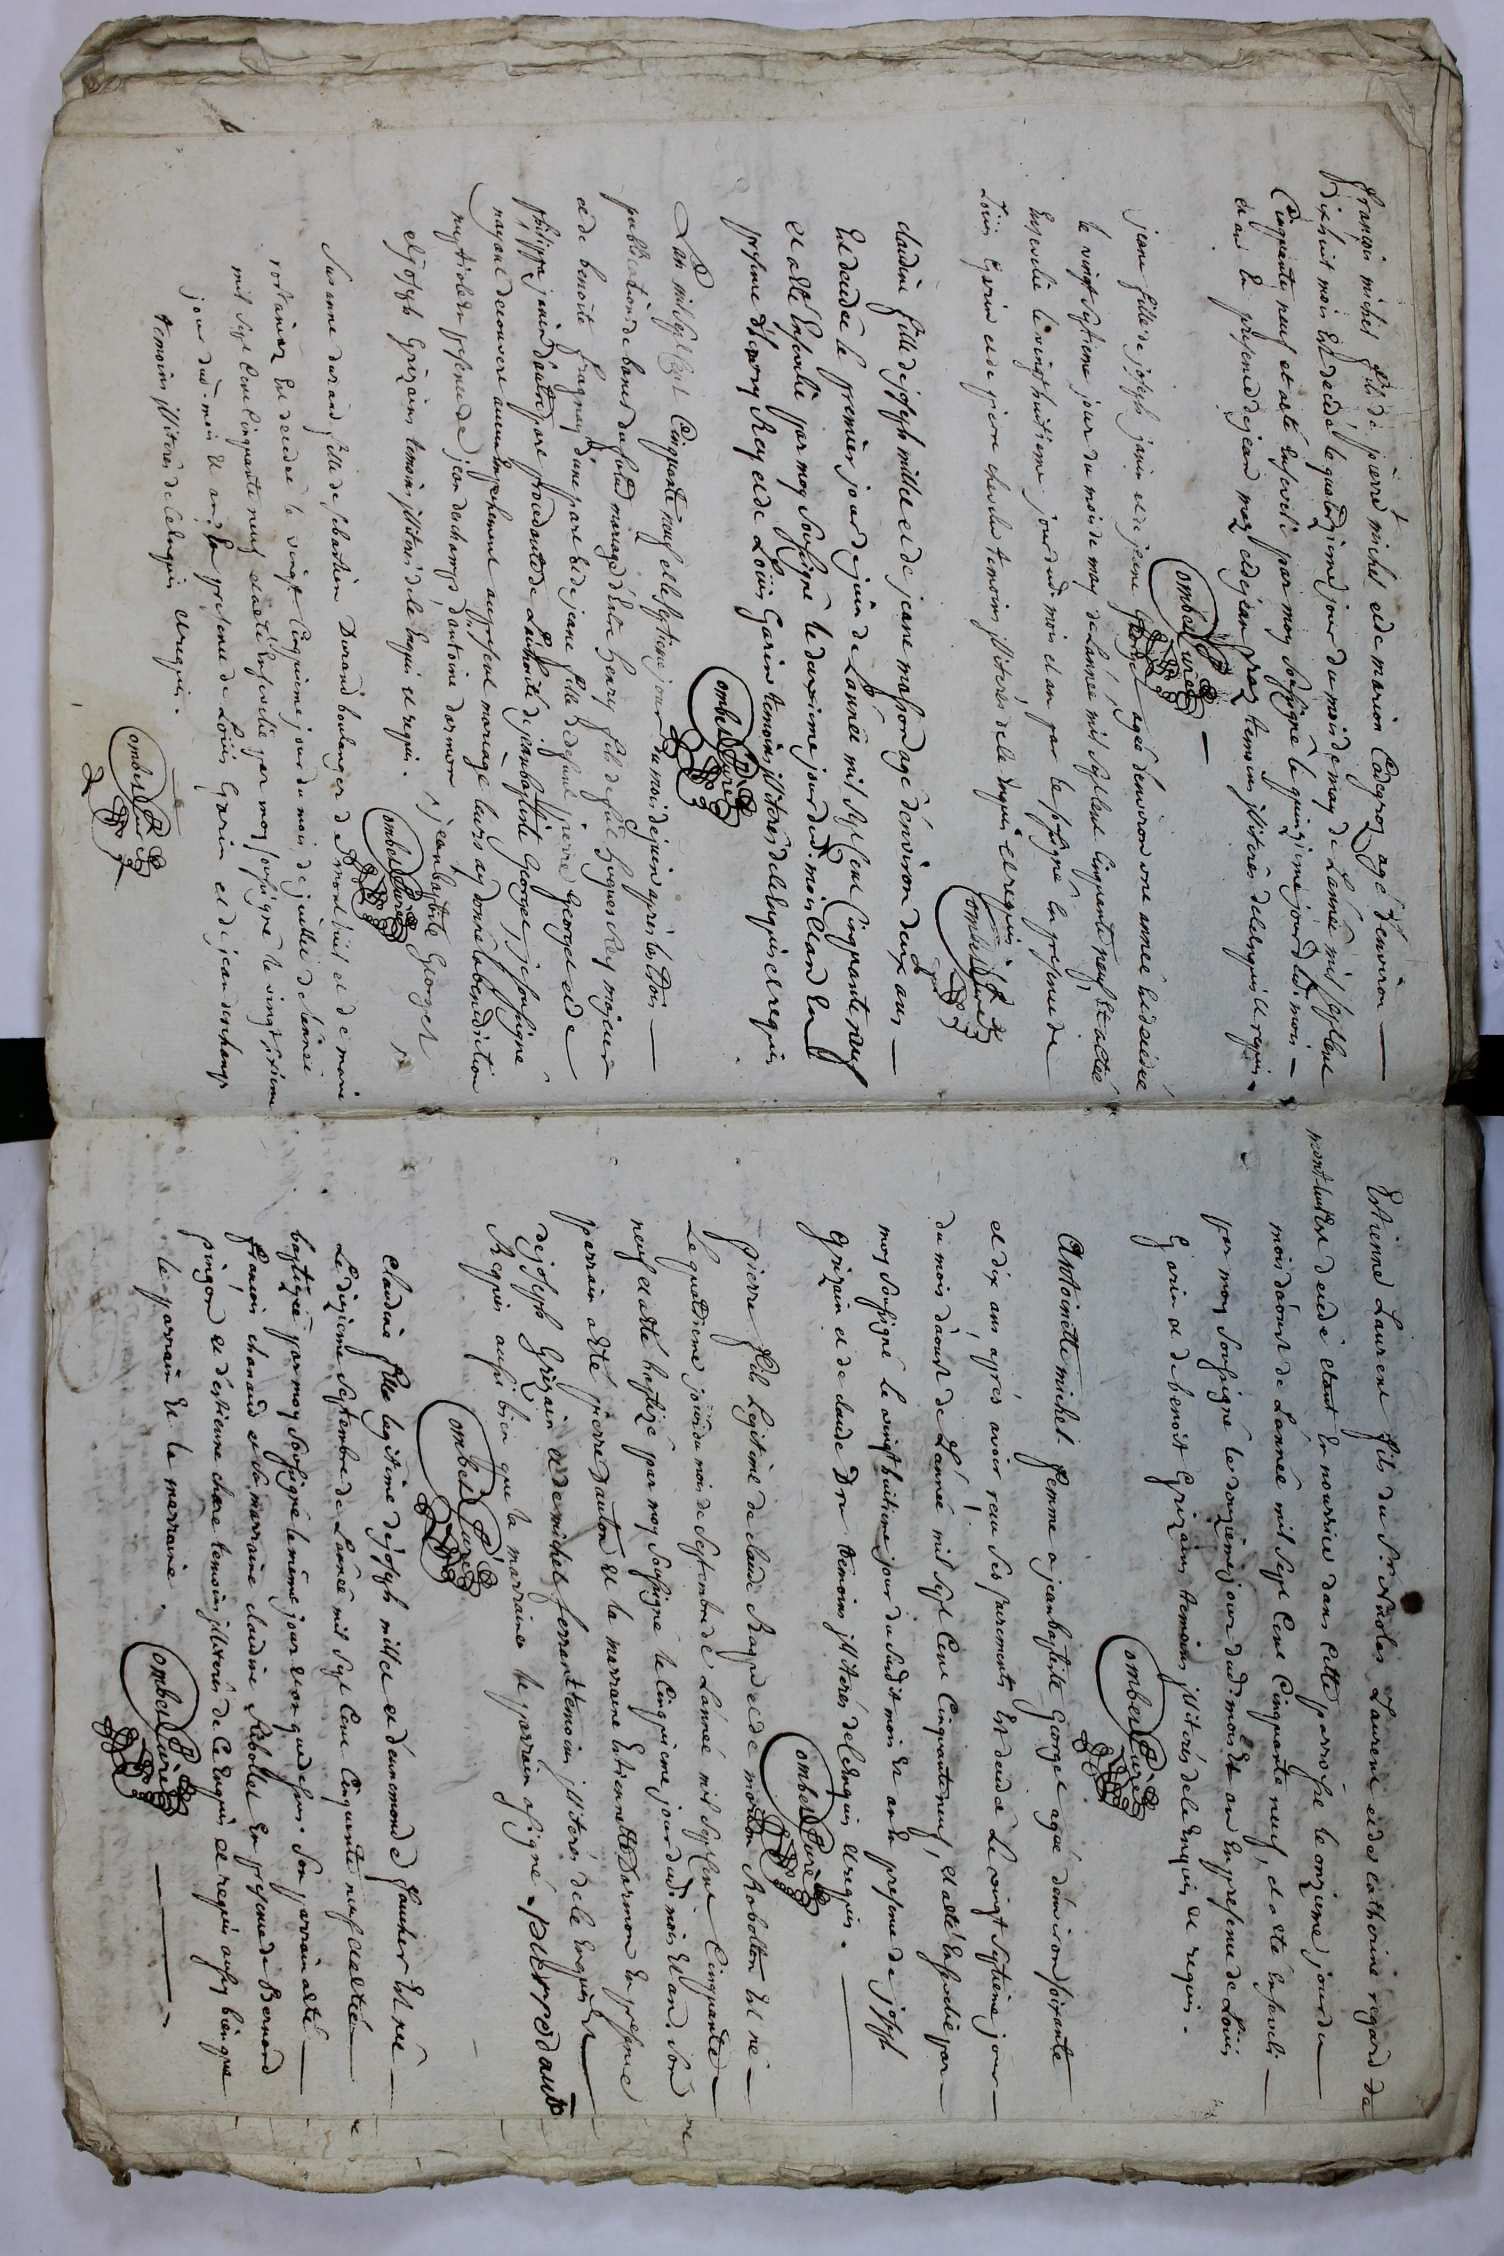 françois michel fils de pierre michel et de marion Cadeyroz agé d'environ
Dixhuit mois Est decedé le quatorzieme jour du mois de may de L'année mil sept cent
Cinquante neuf et a eté Enseveli par moy soussigné le quinzieme jour dudi mois
et an En presence de jean moy et de jean temoins illiterés de le enquis et requis.
Combet Curé
jeane fille de joseph janin et de jeane agée d'environ une année Est decedée
le vingt septieme jour du mois de may de L'année mil sept cent Cinquante neuf, Et a eté
Ensevelie le vingt huitieme jour dudi mois et an par le soussigné En presence de
Loüis Garin et de pierre temoins illiterés de le enquis et requis
Combet Curé
claudine fille de joseph millet et de jeane masson agé d'environ deux ans
Est decedée le premier jour de juin de L'année mil sept cent Cinquante neuf
et a eté Ensevelie par moy soussigné le deuxieme jour dud. mois et an En
presence d' Rey et de Loüis Garin temoins illiterés de le enquis et requis
Combet Curé
L'an mil sept cent Cinquante neuf et le septieme jour du mois de juin après les trois
publications de bancs du futur mariage d'Entre henry fils de feu hugues Rey majeur
et de benoite d'une part et de jeane fille de defunt pierre Georget et de
philippe janin d'autre part procedante de L'authorité de jean baptiste Georget, je soussigné
n'ayant decouvert aucun Empechement au present mariage leurs ay donné la benediction
nuptiale En presence de jean deschamps d'antoine darmon, jean baptiste Georget
et joseph Grizain temoins illiterés de le Enquis et requis.
Combet Curé
Susanne durand fille de sebastien Durand boulanger de et de marie
Est decedée le vingt Cinquieme jour du mois de juillet de L'année
mil sept Cent Cinquante neuf et a eté Ensevelie par moy soussigné le vingt sixieme
jour dud. mois et an En presence de Loüis Garin et de jean deschamps
temoins illiterés de le enquis et requis.
Combet Curé
Estienne Laurent fils du Sr. Nicolas Laurent et de catherine regard de
decedé etant En nourrice dans cette parroisse le onzieme jour du
mois d'aoust de L'année mil sept Cent Cinquante neuf, et a eté Enseveli
par moy soussigné le douzieme jour dud. mois Et an En presence de Loüis
Garin et de benoit Grizain temoins illiterés de le enquis et requis.
Combet Curé
Antoinette michel femme a jean baptiste Georget agée d'environ soixante
et dix ans, après avoir reçu ses sacrements Est decedée Le vingt septieme jour
du mois d'aoust de L'année mil sept Cent Cinquante neuf, et a eté Ensevelie par
moy soussigné le vingt huitieme jour du susdit mois Et an En presence de joseph
Grizain et de claude temoins illiterés de le enquis et requis.
Combet Curé
Pierre fils Legitime de claude et de marion Rabollon Est né
Le quatrieme jour du mois de Septembre de L'année mil sept cent Cinquante
neuf et a eté baptizé par moy soussigné le Cinquieme jour dud. mois Et an. Son
parrain a eté pierre Dauton et la marraine Estiennette Darmon En presence
de joseph Grizain et de michel ferrant temoins illiterés de le Enquis Et
Requis aussi bien que la marraine le parrain a signé.
Combet Curé
claudine fille legitime de joseph millet et d'emonde faucher Est née
Le dixieme Septembre de L'année mil sept Cent Cinquante neuf et a eté
baptizée par moy soussigné le même jour et an que dessus. Son parrain a eté
françois et sa marraine claudine Rebollet En presence de Bernard
pingon et d'estienne temoins illiterés de le Enquis et requis aussy bien que
le parrain Et la marraine.
Combet Curé